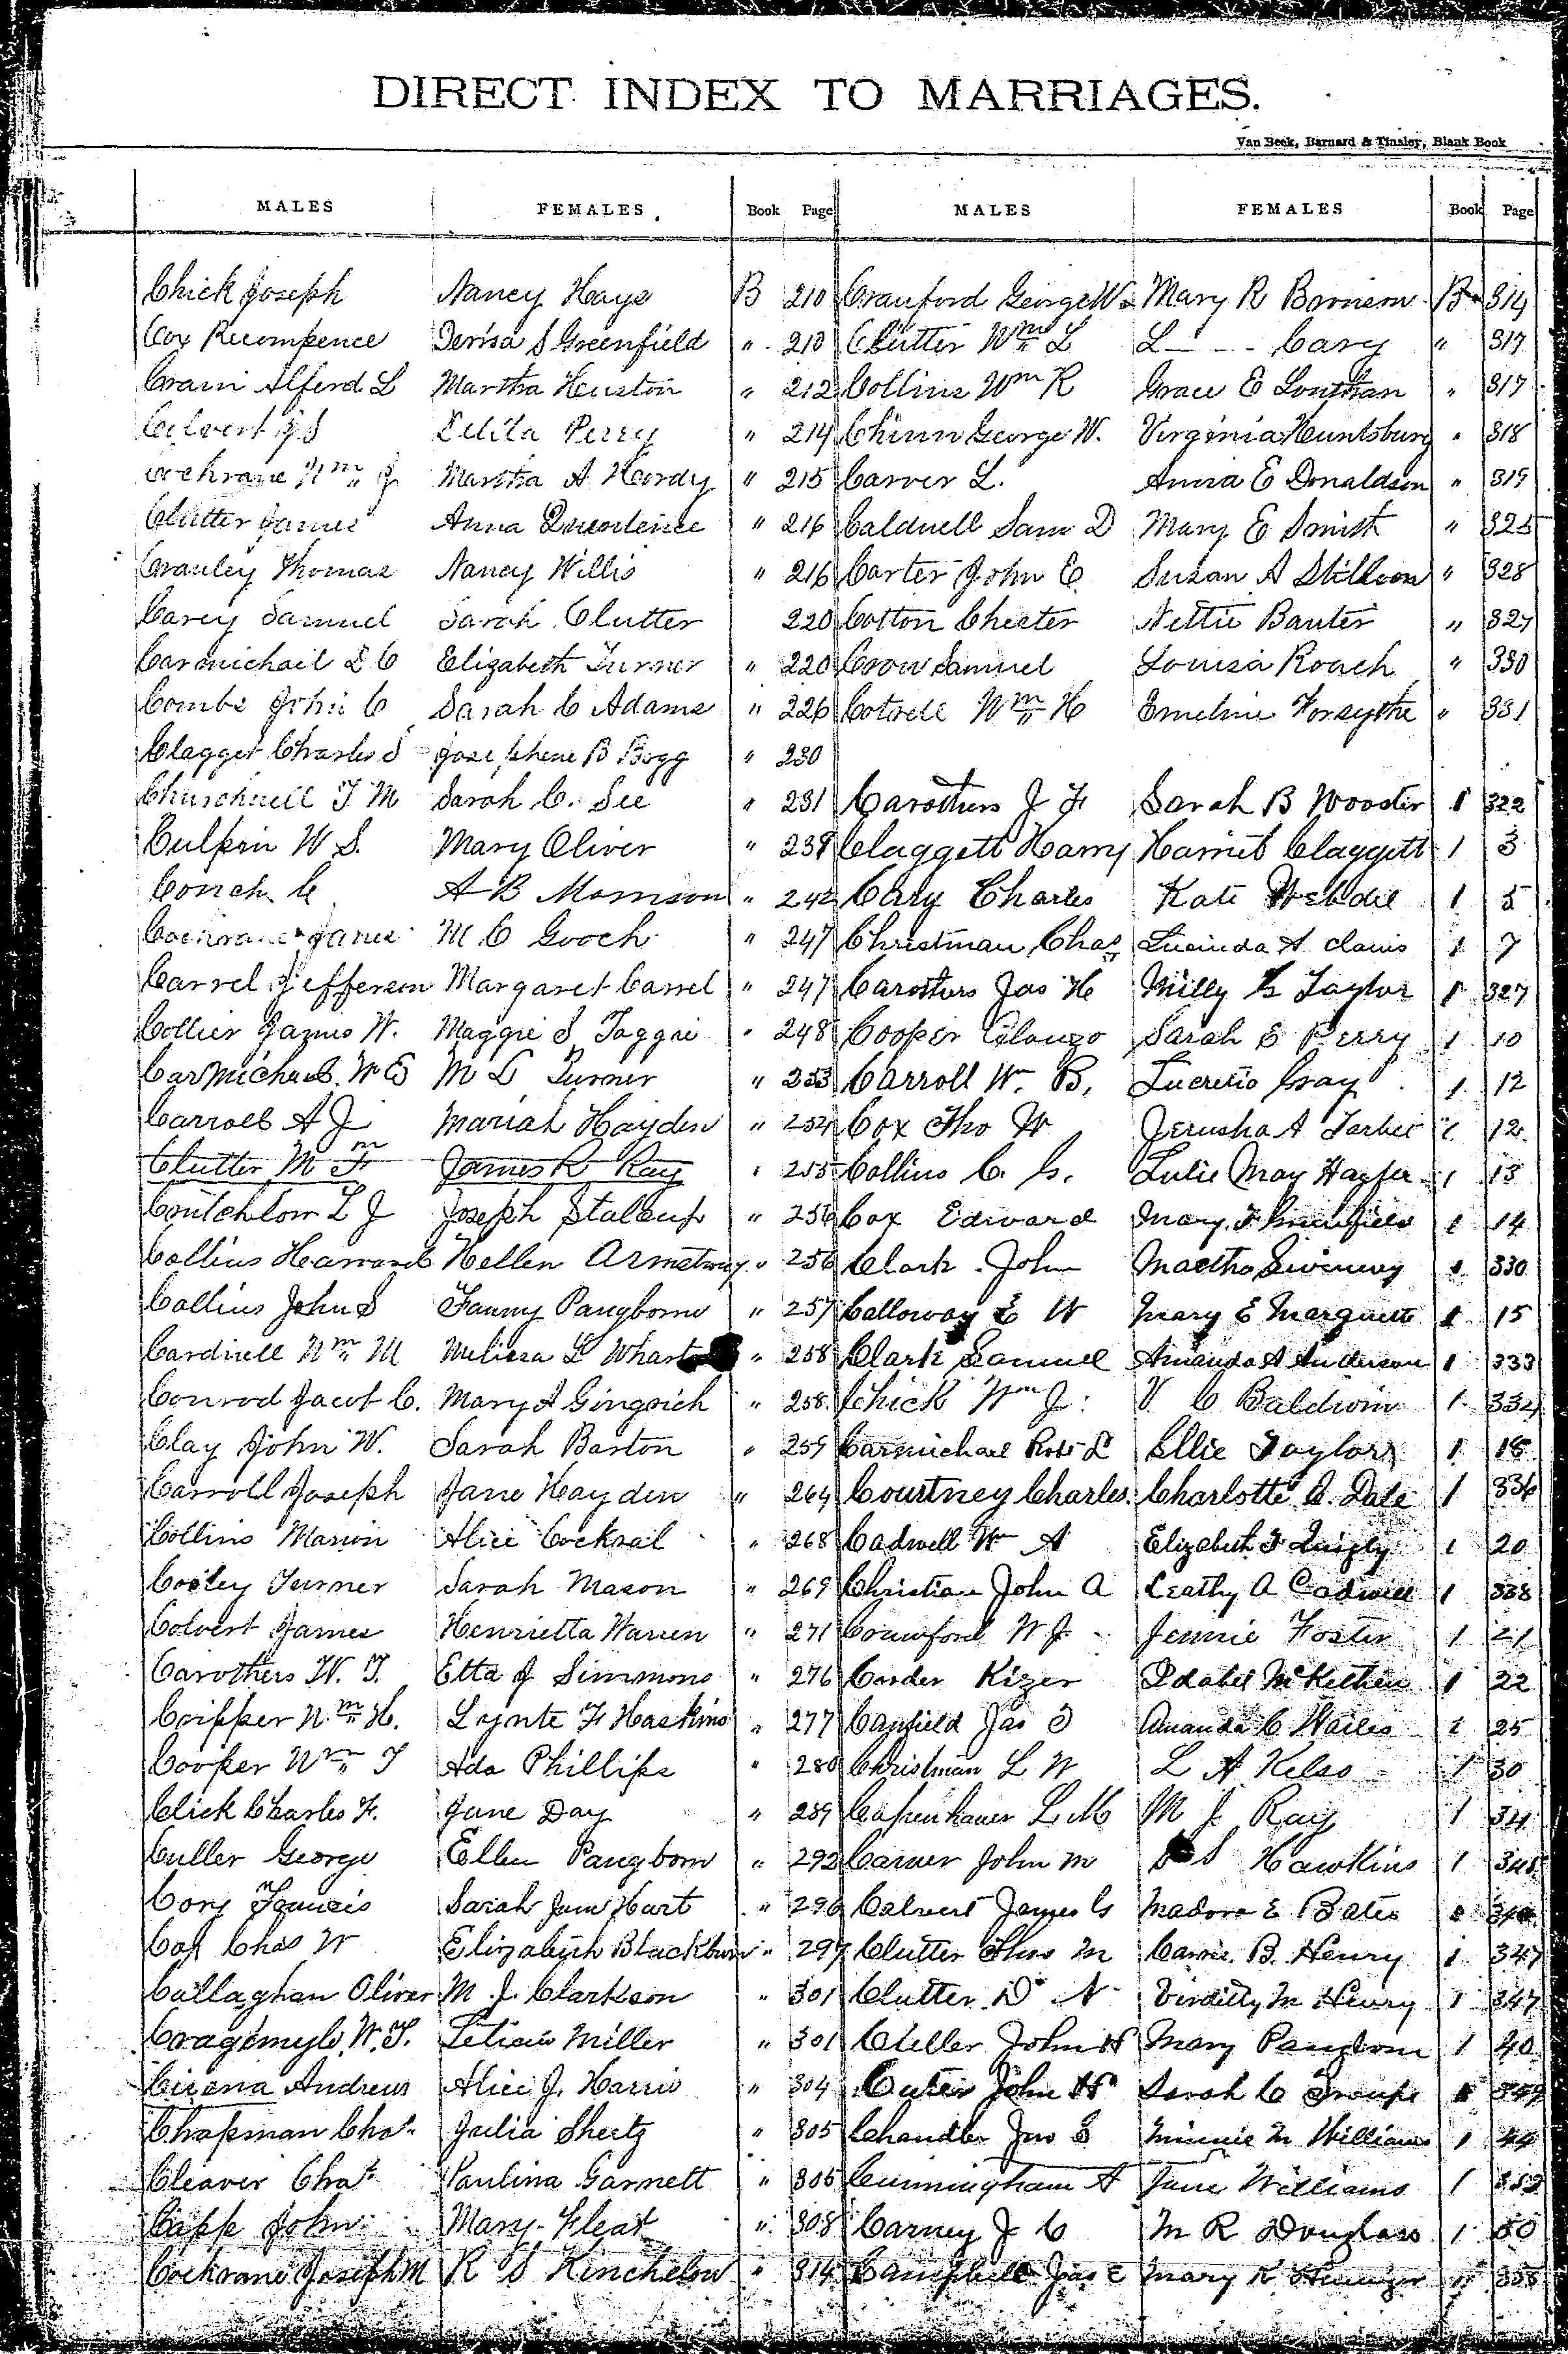 DIRECT INDEX TO MARRIAGES.
Van Beek, Barnard & Tinsley, Blank Book
MALES FEMALES Book Page MALES FEMALES Book Page
Chick Joseph Nancy Hays B 210 Crauford George W Mary R B 314
Cox Recompence Terisa S Greenfield " 210 Clutter Wm L L---- Cary " 317
Crain Alferd L Martha Heuston " 212 Collins Wm R Grace E Louthan " 317
Colvert J S Delila Perry " 214 Chinn George W. Virginia Huntsburg " 318
Cochrane Wm J Martha A Hordy " 215 Carver L. Anna E Donaldson " 319
Clutter James Anna " 216 Caldwell Sam D Mary E Smith " 325
Cranley Thomas Nancy Willis " 216 Carter John E Susan A " 328
Carey Samuel Sarah Clutter 220 Cotton Chester Nettie Banter " 327
Carmichail L C Elizabeth Turner " 220 Crow Samuel Louisa Roach " 330
Combs John C Sarah C Adams " 226 Cotrell Wm H Emeline Forsythe " 331
Clagget Charles S Josephene B Bogg " 230
Churchwell T M Sarah C. See " 231 Carothers J F Sarah B Wooster 1 322
Culpin W S. Mary Oliver " 239 Claggett Harry Harriet Claggett 1 3
Conch C A B Morrison " 242 Cary Charles Kate 1 5
Cochrane James M C Gooch " 247 Christman Chas Lucinda A davis 1 7
Carrel Jefferson Margaret Carrel " 247 Carothers Jas H Milly G Taylor 1 327
Collier James W. Maggie S Taggie " 248 Cooper Alonzo Sarah E Perry 1 10
Carmichael W E M L Turner " 253 Carroll W. B. Lucretio Gray 1 12
Carroll A J Mariah Hayden " 254 Cox Tho W Jerusha A Tarbet 1 12
Clutter M F James R Ray " 255 Collins C. G. Lulie May Harper 1 13
Critchlow L J Joseph Stalcup " 256 Cox Edward Mary F 1 14
Collins Harvard Hellen Armstrong " 256 Clark John Martha Swinney 1 330
Collins John S Fanny Pangborn " 257 Calloway E W Mary E Marquette 1 15
Cardwell Wm M Melissa L " 258 Clark Samuel Amanda A Anderson 1 333
Conrod Jacob C. Mary A Gingrich " 258 Chick Wm J. V C Baldwin 1 334
Clay John W. Sarah Barton " 259 Carmichael Robt L Ellie Taylor 1 18
Carroll Joseph Jane Hayden " 264 Courtney Charles. Charlotte C. Dale 1 336
Collins Marion Alice Cockral " 268 Cadwell Wm A Elizabeth F Quigly 1 20
Cooley Turner Sarah Mason " 269 Christian John A Leathy A Cadwell 1 338
Colvert James Henrietta Warren " 271 Crawford W J Jennie Foster 1 21
Carothers W. T. Etta J Simmons " 276 Corder Kizer Idabel 1 22
Cripper Wm H. F Haskins " 277 Canfield Jas O Amanda C Wailes 1 25
Cooper Wm T Ada Phillips " 280 Christman L W L A Kelso 1 30
Click Charles F. Jane Day " 289 Copenhaver L M M J Ray 1 34
Culler George Ellen Pangborn " 292 Carver John M S Hawkins 1 345
Cory Francis Sarah Jane Hart " 296 Calvert James G Madora E Bates 1
Cox Chas W Elizabeth Blackburn " 297 Clutter Thos M Carrie B. Henry 1 347
Callaghan Oliver M. J. Clarkson " 301 Clutter D N M Henry 1 347
W. T. Leticia Miller " 301 Culler John H Mary Pangborn 1 40
Andrew Alice J. Harris " 304 John H Sarah C 1 349
Chapman Chas. Julia Shertz " 305 Chandler Jno E Minnie M Williams 1 44
Cleaver Chas Paulina Garnett " 305 Cunningham A Jane Williams 1 352
Capp John Mary " 308 Carney J C M R Douglass 1 50
Cochrane Joseph M R S Kinchelow " 314 Campbell Jas E Mary K 1 355